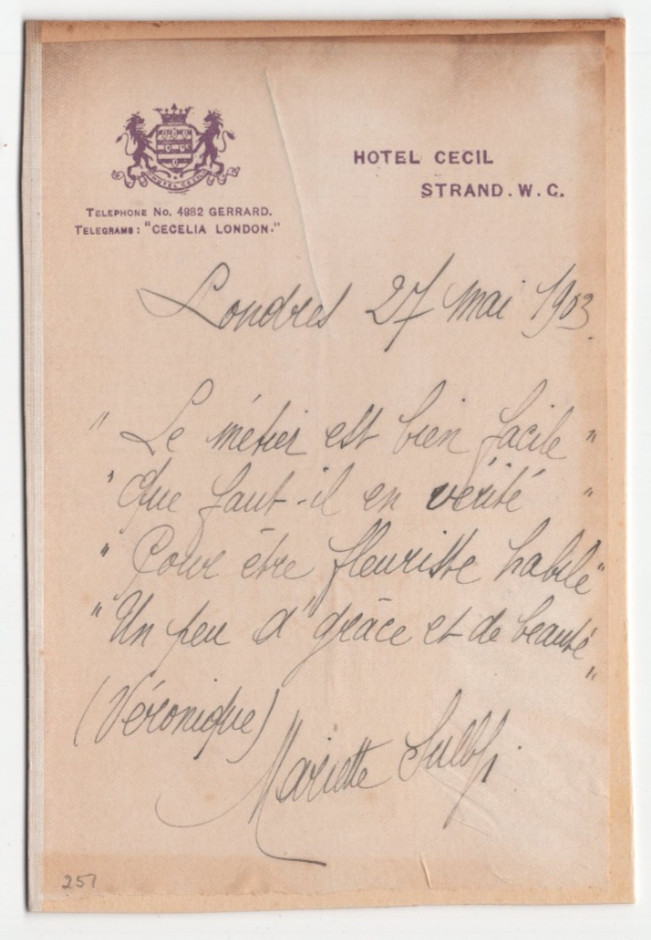 HOTEL CECIL
HOTEL CECIL
STRAND. W. C.
TELEPHONE No. 4982 GERRARD.
TELEGRAMS: "CECELIA LONDON."
Londres 27 Mai 1903.
" Le métier est bien facile "
" Que faut-il en vérité "
" Pour être fleuriste habile "
" Un peu d'grâce et de beauté "
(Véronique)
Mariette Sully.
251